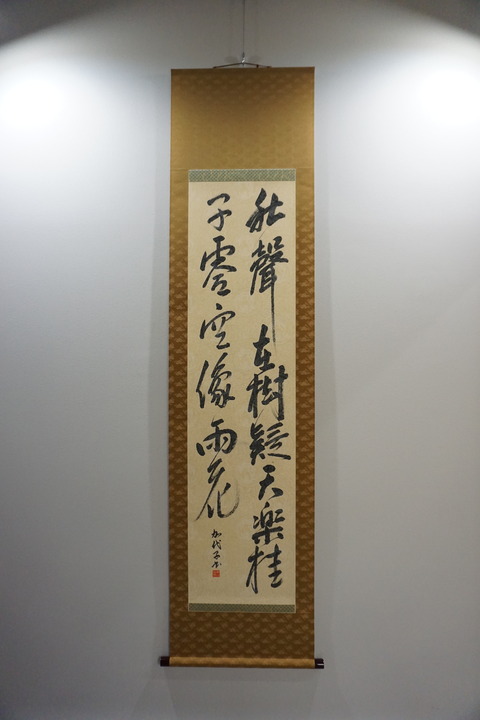 秋聲在樹疑天楽桂
子零空像雨花
加代子書